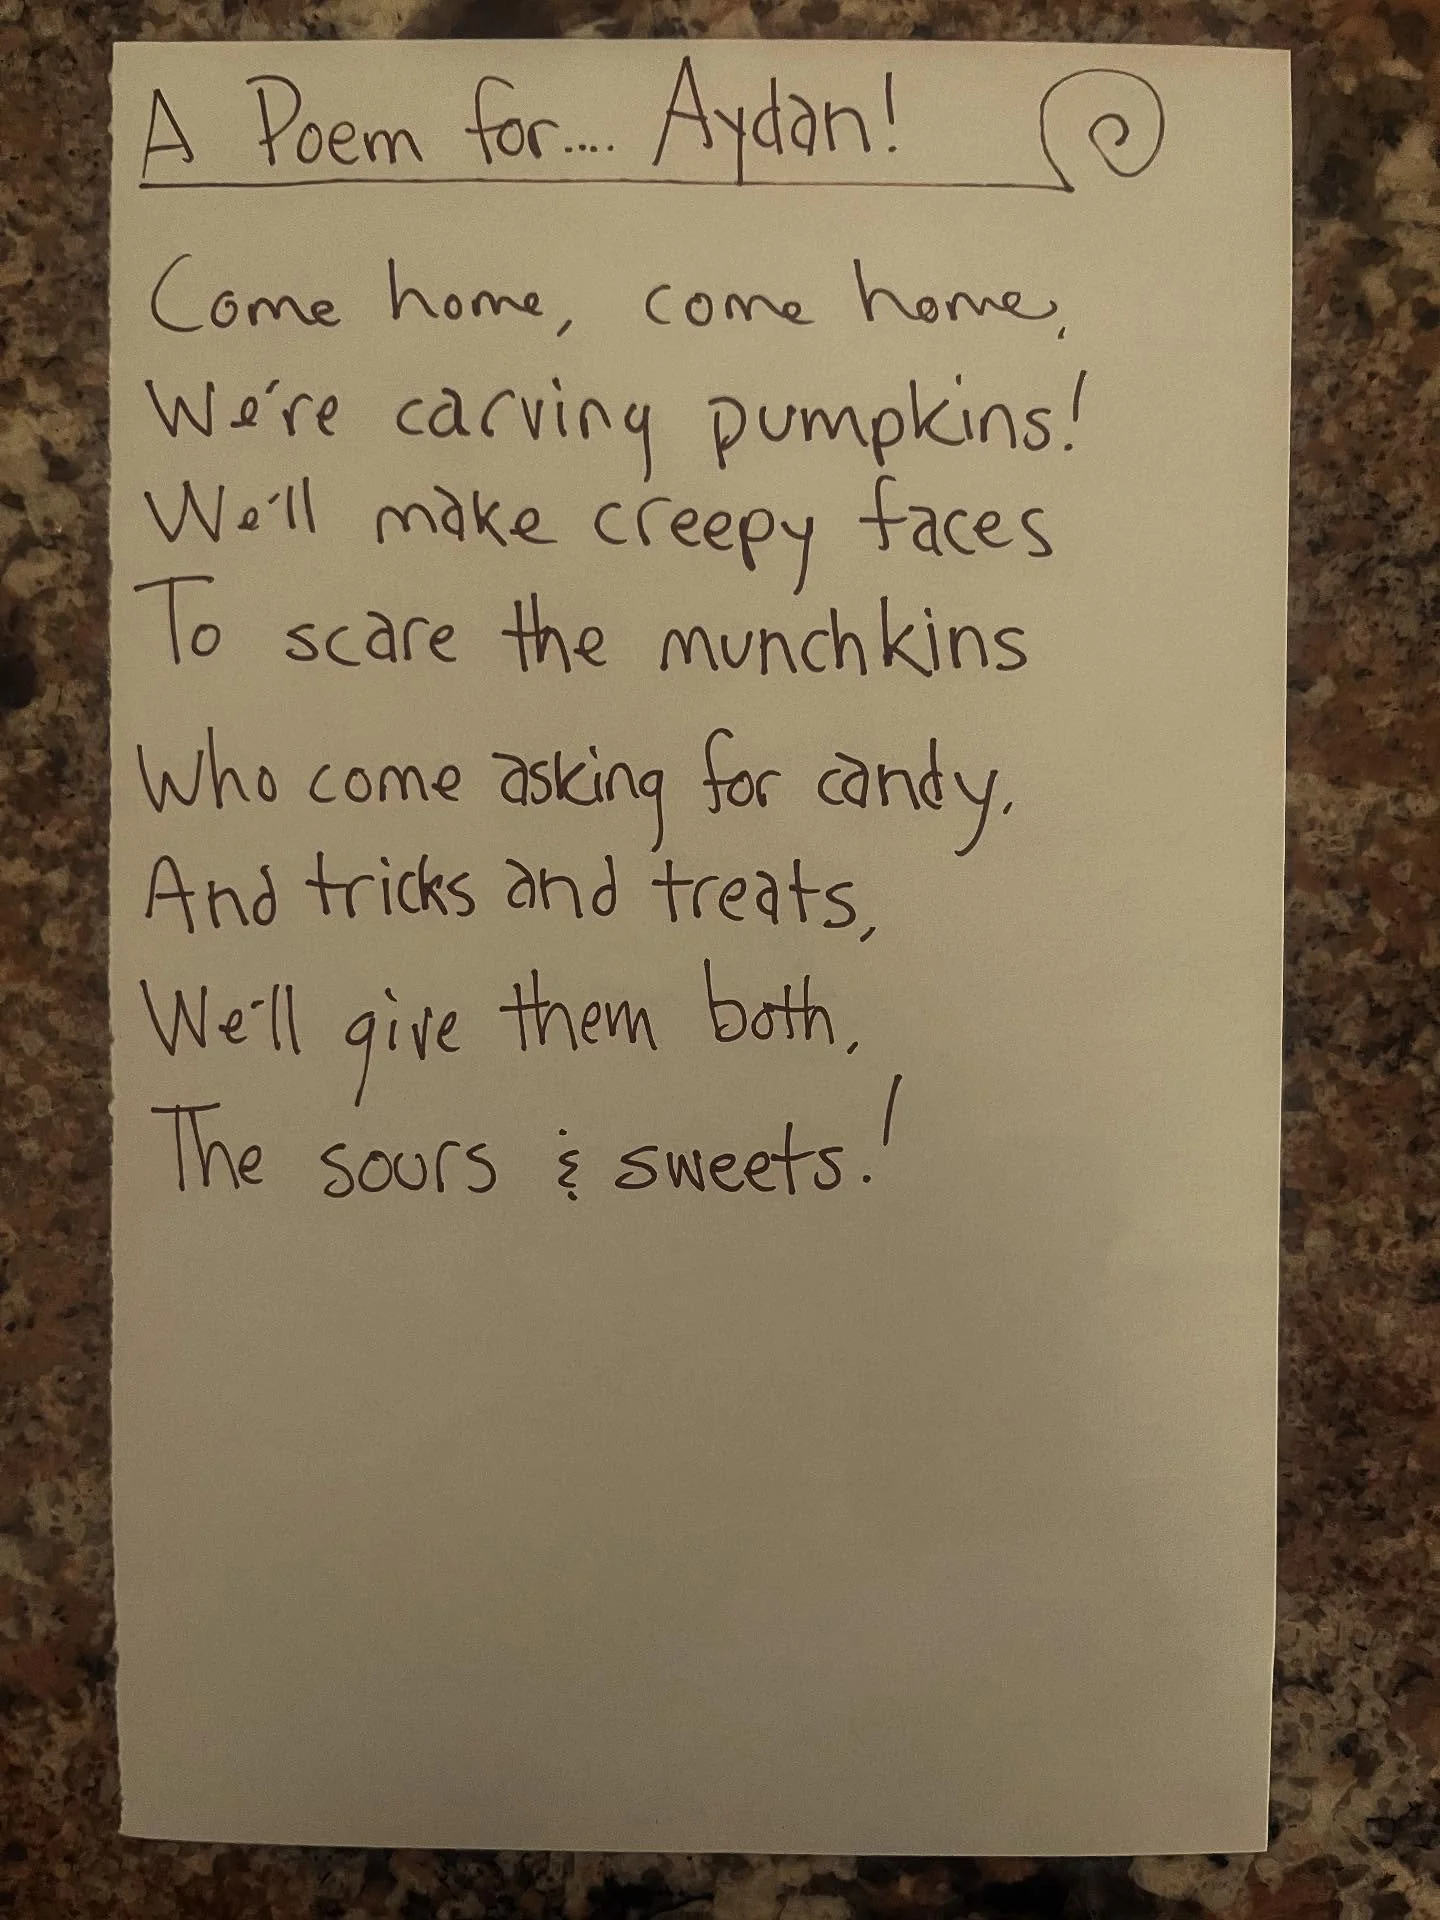 A Poem for.... Aydan!
Come home, come home,
We're carving pumpkins!
We'll make creepy faces
To scare the munchkins
Who come asking for candy,
And tricks and treats,
We'll give them both,
The sours & sweets!